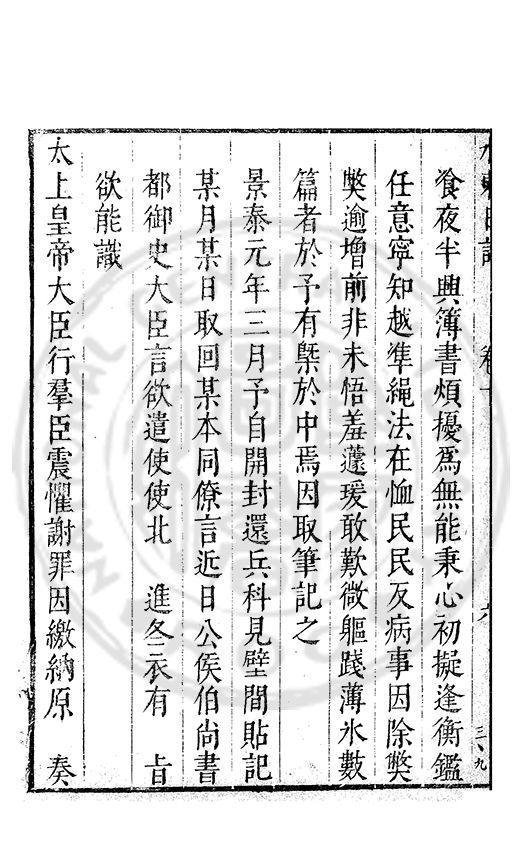 飡夜半興簿書煩擾爲無能秉心初擬逢衡鑑
任意寧知越準繩法在恤民民反病事因除獘
獘逾增前非未悟羞蘧瑗敢歎微軀踐薄氷數
篇者於予有槩於中焉因取筆記之
景泰元年三月予自開封還兵科見壁間貼記
某月某日取回某本同僚言近日公侯伯尚書
都御史大臣言欲遣使使北　進冬衣有　旨
欲能識
太上皇帝大臣行羣臣震懼謝罪因繳納原　奏